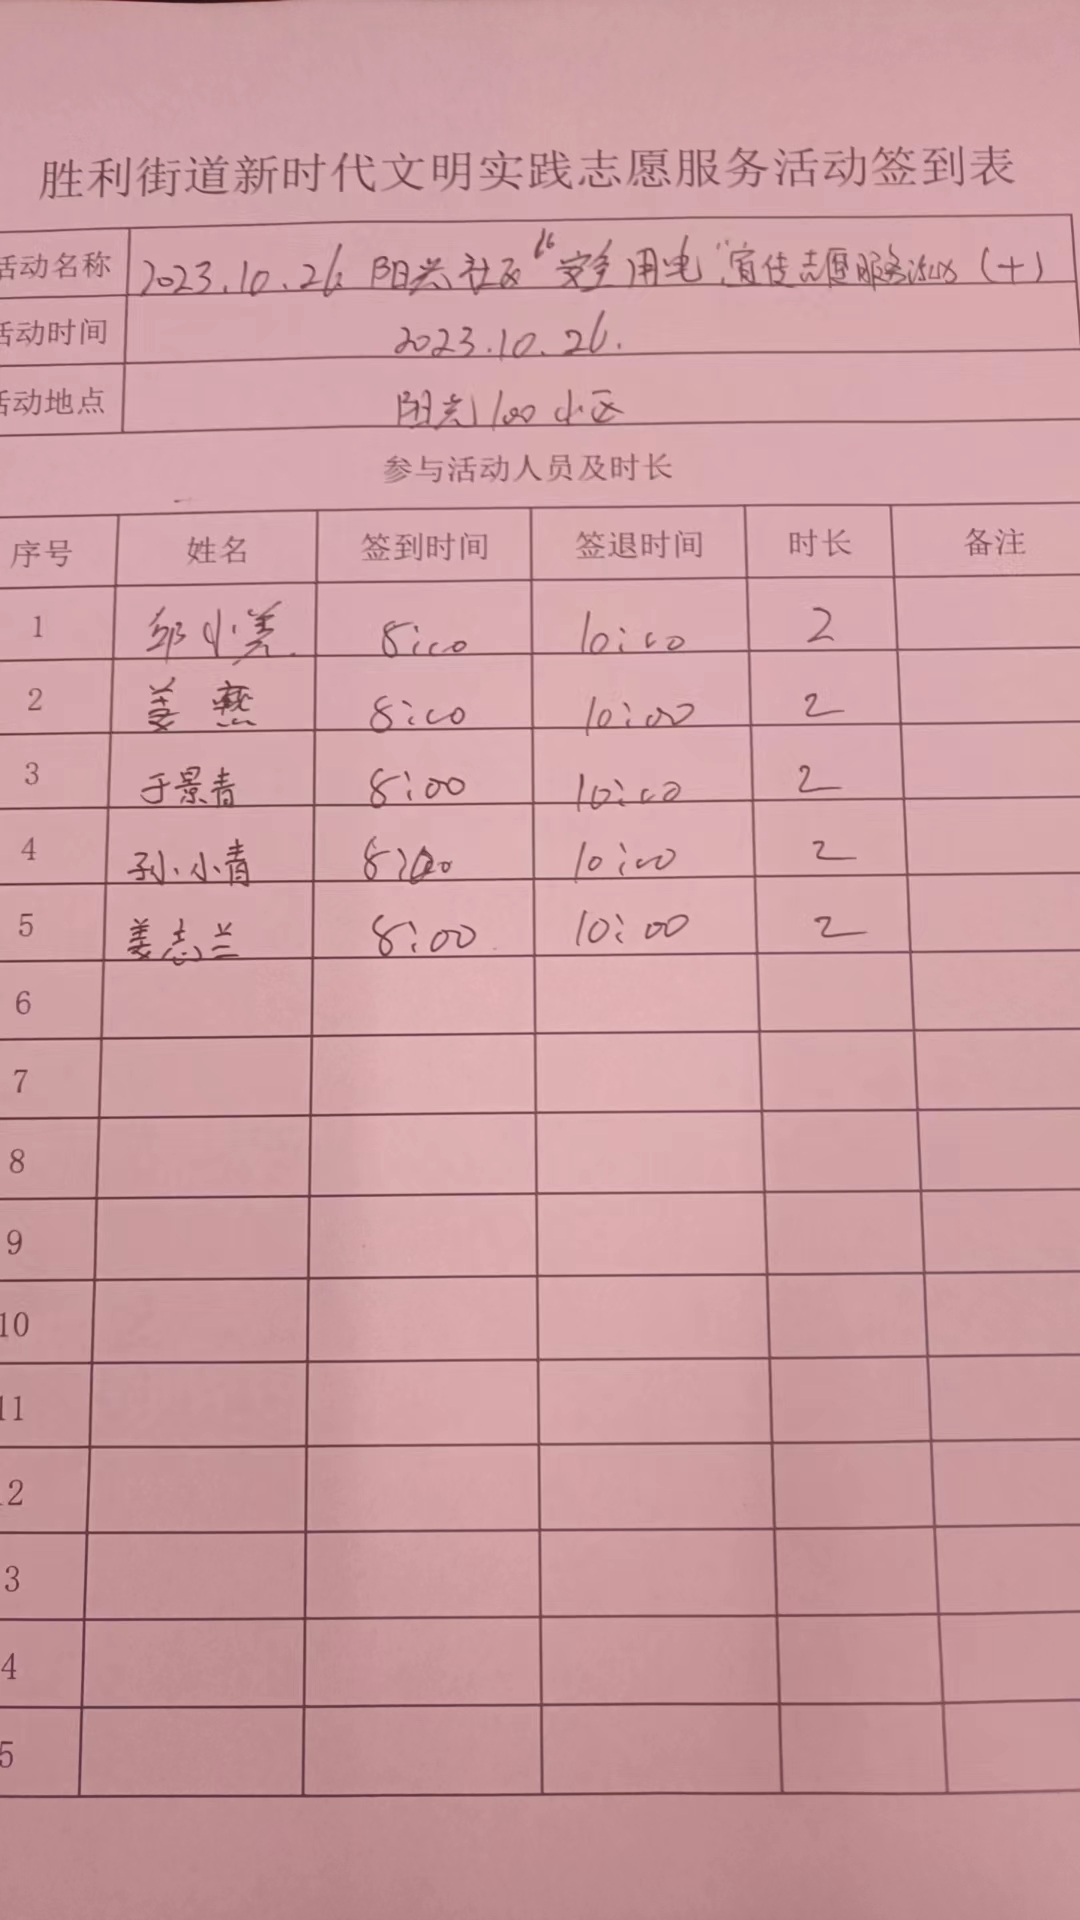 胜利街道新时代文明实践志愿服务活动签到表
活动名称 2023.10.26 阳光社区“安全用电”宣传志愿服务活动(十)
活动时间 2023.10.26.
活动地点 阳光100小区
参与活动人员及时长
序号 姓名 签到时间 签退时间 时长 备注
1 邱小美 8:00 10:00 2
2 姜燕 8:00 10:00 2
3 于景青 8:00 10:00 2
4 孙小青 8:00 10:00 2
5 姜志兰 8:00 10:00 2
6
7
8
9
10
11
12
3
4
5